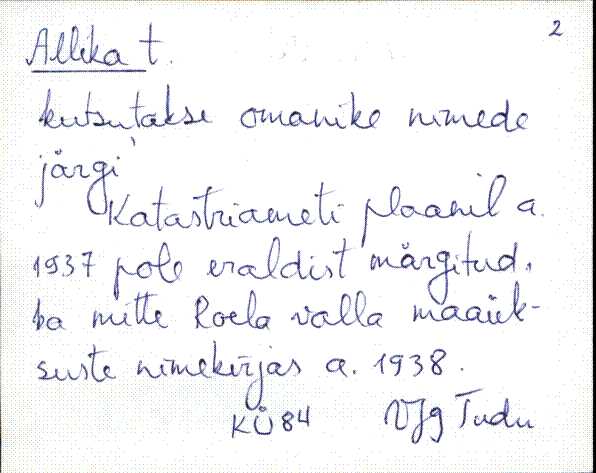 2
Allika t.
kutsutakse omanike nimede
järgi
Katastriameti plaanil a.
1937 pole eraldist märgitud,
ka mitte Roela valla maaük-
suste nimekirjas a. 1938.
KÜ 84 VJg Tudu